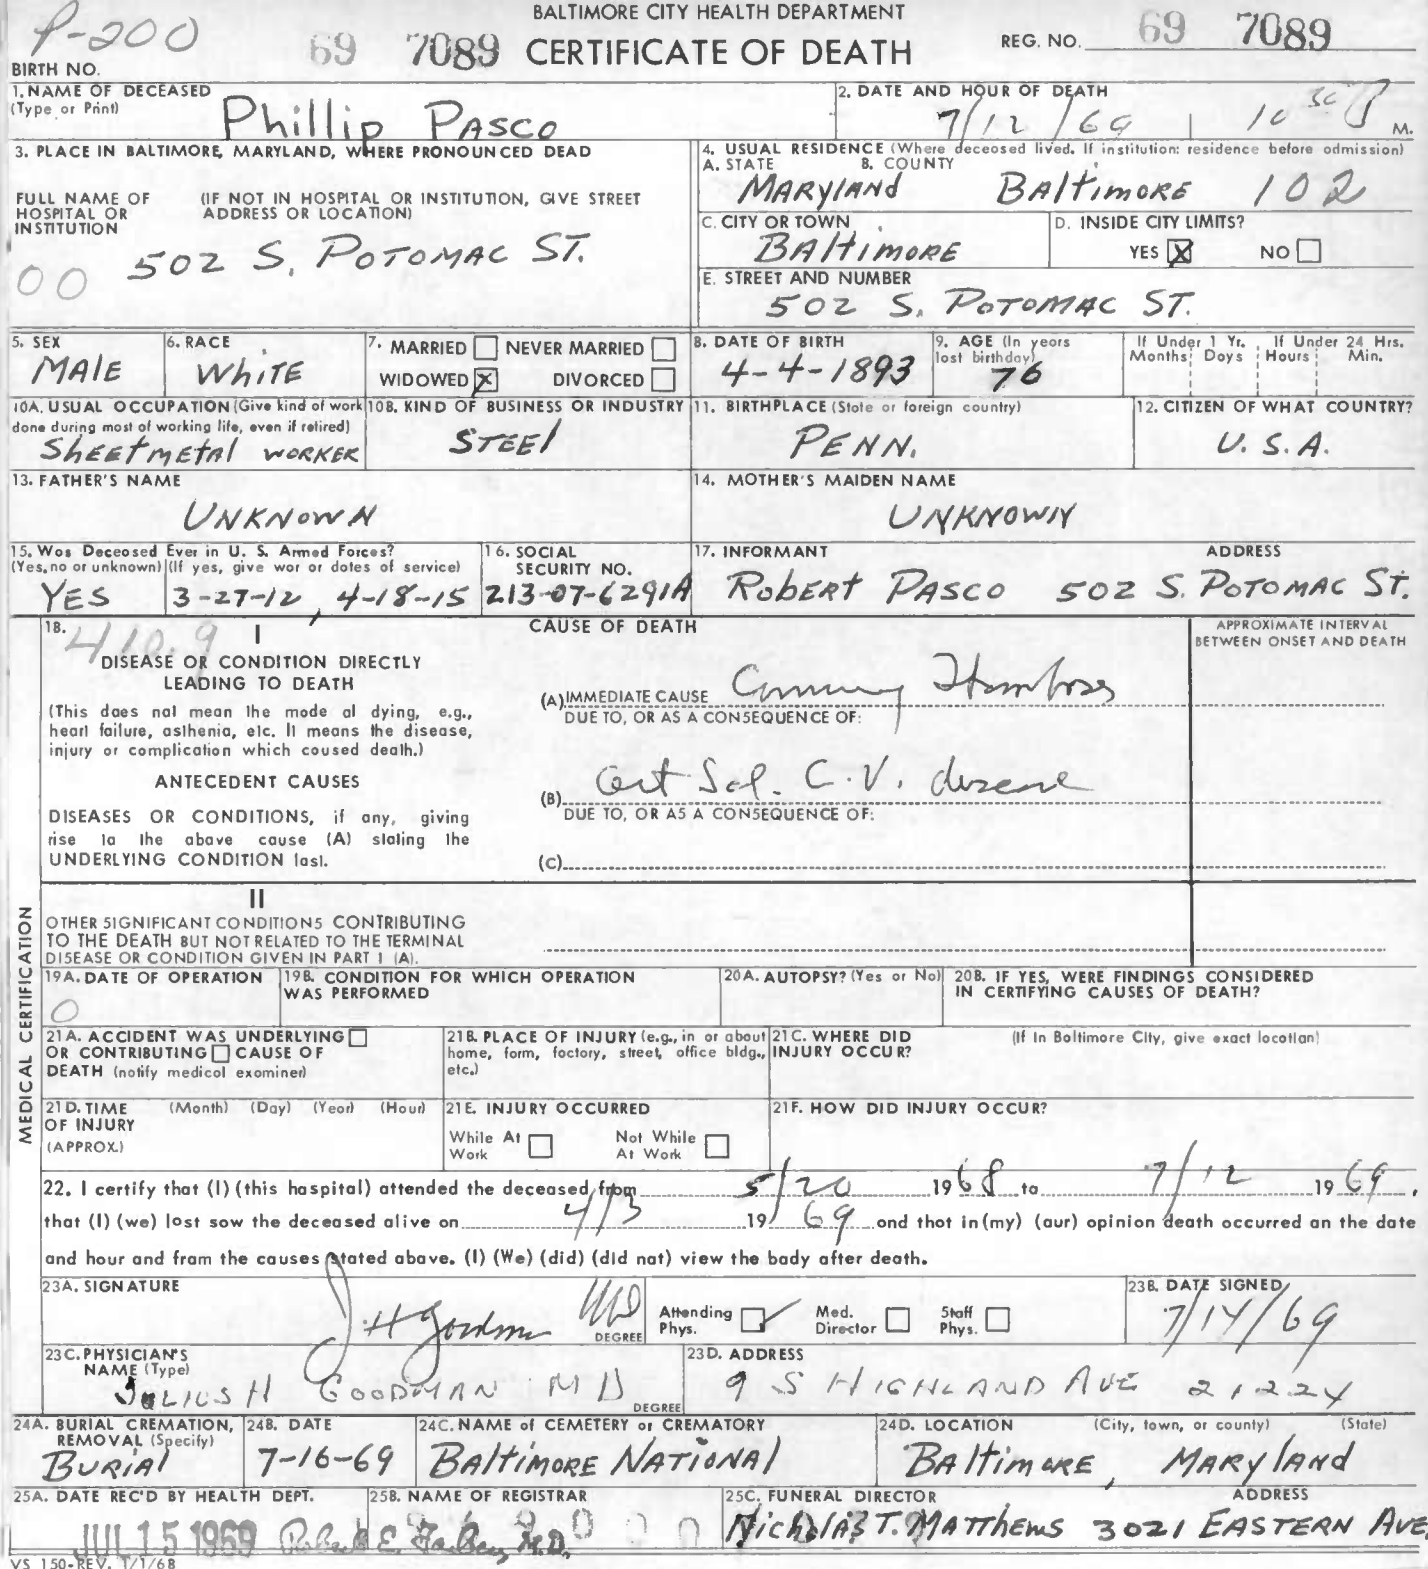 P-200
BALTIMORE CITY HEALTH DEPARTMENT
69 7089 CERTIFICATE OF DEATH REG. NO. 69 7089
BIRTH NO.
1. NAME OF DECEASED (Type or Print) Phillip PASCO
2. DATE AND HOUR OF DEATH 7/12/69 10 30 P M.
3. PLACE IN BALTIMORE, MARYLAND, WHERE PRONOUNCED DEAD
FULL NAME OF HOSPITAL OR INSTITUTION (IF NOT IN HOSPITAL OR INSTITUTION, GIVE STREET ADDRESS OR LOCATION)
00 502 S. POTOMAC ST.
4. USUAL RESIDENCE (Where deceased lived. If institution: residence before admission)
A. STATE B. COUNTY
MARYland BALTIMORE 102
C. CITY OR TOWN BALTIMORE
D. INSIDE CITY LIMITS? YES X NO
E. STREET AND NUMBER
502 S. POTOMAC ST.
5. SEX MALE
6. RACE WHITE
7. MARRIED NEVER MARRIED
WIDOWED X DIVORCED
8. DATE OF BIRTH 4-4-1893
9. AGE (In years last birthday) 76
If Under 1 Yr. Months Days If Under 24 Hrs. Hours Min.
10A. USUAL OCCUPATION (Give kind of work done during most of working life, even if retired) SHEETMETAL WORKER
10B. KIND OF BUSINESS OR INDUSTRY STEEL
11. BIRTHPLACE (State or foreign country) PENN.
12. CITIZEN OF WHAT COUNTRY? U.S.A.
13. FATHER'S NAME UNKNOWN
14. MOTHER'S MAIDEN NAME UNKNOWN
15. Was Deceased Ever in U. S. Armed Forces? (Yes, no or unknown) (If yes, give war or dates of service)
YES 3-27-12, 4-18-15
16. SOCIAL SECURITY NO. 213-07-6291A
17. INFORMANT ADDRESS
ROBERT PASCO 502 S. POTOMAC ST.
18. 410.9 I
CAUSE OF DEATH
APPROXIMATE INTERVAL BETWEEN ONSET AND DEATH
DISEASE OR CONDITION DIRECTLY LEADING TO DEATH
(This does not mean the mode of dying, e.g., heart failure, asthenia, etc. It means the disease, injury or complication which caused death.)
ANTECEDENT CAUSES
DISEASES OR CONDITIONS, if any, giving rise to the above cause (A) stating the UNDERLYING CONDITION last.
(A) IMMEDIATE CAUSE Coronary Thrombosis
DUE TO, OR AS A CONSEQUENCE OF:
(B) Art Scl. C.V. disease
DUE TO, OR AS A CONSEQUENCE OF:
(C)
MEDICAL CERTIFICATION
II
OTHER SIGNIFICANT CONDITIONS CONTRIBUTING TO THE DEATH BUT NOT RELATED TO THE TERMINAL DISEASE OR CONDITION GIVEN IN PART I (A).
19A. DATE OF OPERATION 0
19B. CONDITION FOR WHICH OPERATION WAS PERFORMED
20A. AUTOPSY? (Yes or No)
20B. IF YES, WERE FINDINGS CONSIDERED IN CERTIFYING CAUSES OF DEATH?
21A. ACCIDENT WAS UNDERLYING OR CONTRIBUTING CAUSE OF DEATH (notify medical examiner)
21B. PLACE OF INJURY (e.g., in or about home, farm, factory, street, office bldg., etc.)
21C. WHERE DID INJURY OCCUR? (If in Baltimore City, give exact location)
21D. TIME OF INJURY (APPROX.) (Month) (Day) (Year) (Hour)
21E. INJURY OCCURRED
While At Work Not While At Work
21F. HOW DID INJURY OCCUR?
22. I certify that (I) (this hospital) attended the deceased from 5/20 1968 to 7/12 1969,
that (I) (we) last saw the deceased alive on 4/3 1969 and that in (my) (our) opinion death occurred on the date
and hour and from the causes stated above. (I) (We) (did) (did not) view the body after death.
23A. SIGNATURE J H Goodman MD DEGREE
Attending Phys. ✓ Med. Director Staff Phys.
23B. DATE SIGNED 7/14/69
23C. PHYSICIAN'S NAME (Type) JULIUS H GOODMAN MD DEGREE
23D. ADDRESS 9 S HIGHLAND AVE 21224
24A. BURIAL CREMATION, REMOVAL (Specify) BURIAL
24B. DATE 7-16-69
24C. NAME of CEMETERY or CREMATORY BALTIMORE NATIONAL
24D. LOCATION (City, town, or county) (State)
BALTIMORE, MARYLAND
25A. DATE REC'D BY HEALTH DEPT. JUL 15 1969
25B. NAME OF REGISTRAR Robert E. Farber, M.D.
25C. FUNERAL DIRECTOR ADDRESS
Nicholas T. MATTHEWS 3021 EASTERN AVE
VS 150-REV. 1/1/68